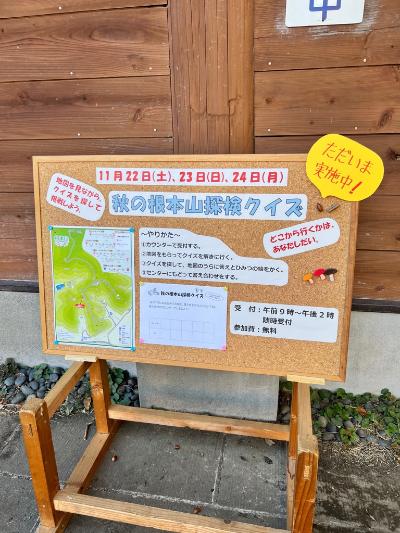 中
ただいま
実施中!
11月22日(土)、23日(日)、24日(月)
秋の根本山探検クイズ
地図を見ながら、
クイズを探して
挑戦しよう。
どこから行くかは、
あなたしだい。
～やりかた～
①カウンターで受付する。
②地図をもらってクイズを解きに行く。
③クイズを探して、地図のうらに答えとひみつの絵をかく。
④センターにもどって答え合わせをする。
秋の根本山探検クイズ
受　付：午前9時～午後2時
随時受付
参加費：無料